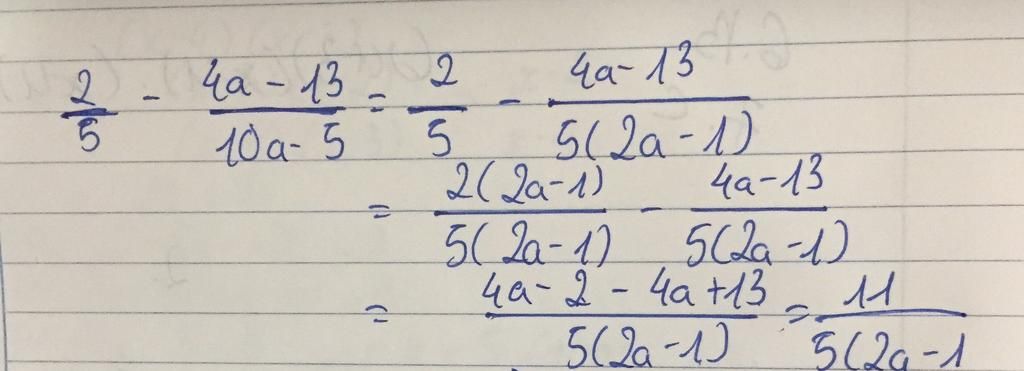 2/5 - (4a - 13)/(10a - 5) = 2/5 - (4a - 13)/(5(2a - 1))
= (2(2a - 1))/(5(2a - 1)) - (4a - 13)/(5(2a - 1))
= (4a - 2 - 4a + 13)/(5(2a - 1)) = 11/(5(2a - 1